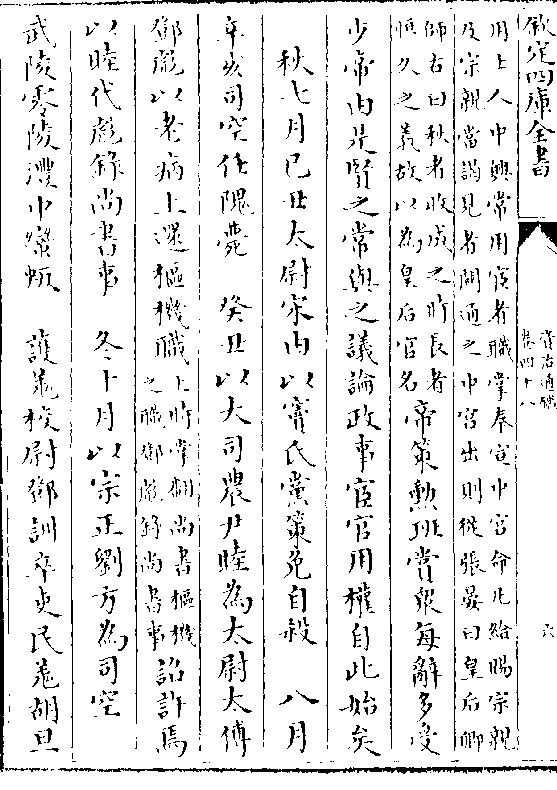 欽定四庫全書
資治通鑑
卷四十八
六
用士人中興常用宦者職掌奉宣中宮命凡給賜宗親
及宗親當謁見者關通之中宮出則從張晏曰皇后卿
師古曰秋者收成之時長者
恒久之義故以為皇后官名
帝策勲班賞衆每辭多受
少帝由是賢之常與之議論政事宦官用權自此始矣
秋七月己丑太尉宋由以竇氏黨策免自殺　八月
辛亥司空任隗薨　癸丑以大司農尹睦為太尉太傅
鄧彪以老病上還樞機職
上時掌翻尚書樞機
之職鄧彪錄尚書事
詔許焉
以睦代彪錄尚書事　冬十月以宗正劉方為司空
武陵零陵澧中蠻叛　護羌校尉鄧訓卒吏民羌胡旦